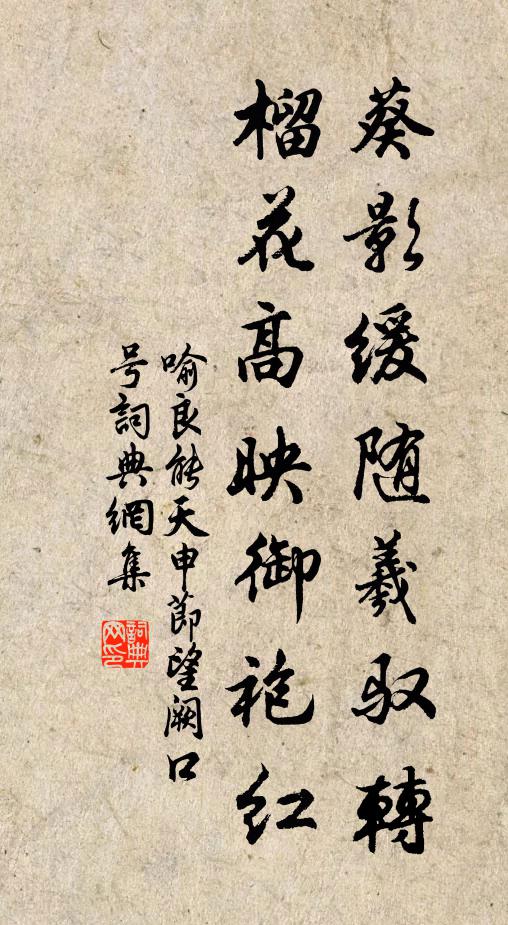 葵影缓随羲驭轉
榴花高映御袍红
喻良能天申節望阙口
号詞典網集
詞典網印